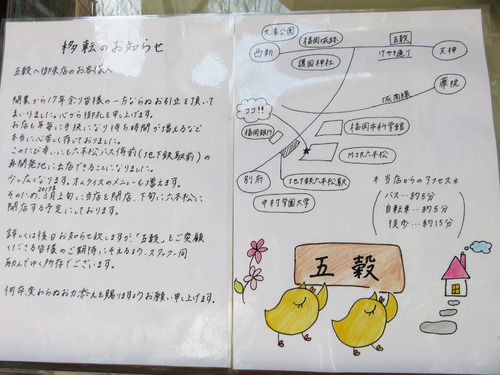 移転のお知らせ
五穀へ御来店のお客様へ
開業から17年余り皆様の一方ならぬお引立を頂いて
まいりました。心から御礼を申し上げます。
お店も年毎に手狭になり待ち時間が増えるなど
本当に心苦しく存じておりました。
このたび幸いにも六本松バス停前(地下鉄駅前)の
再開発地に出店できることになりました。
少し広くなります。オムライスのメニューも増えます。
そのため、2017年3月上旬に当店を閉店、下旬に六本松に
開店する予定にしております。
詳しくは後日お知らせ致しますが「五穀」をご愛顧
くださる皆様のご期待に添えるよう、スタッフ一同
励んでゆく所存でございます。
何卒、変わらぬお力添えを賜りますようお願い申し上げます。
大濠公園
福岡城跡
五穀
西新
護国神社
けやき通り
天神
薬院
城南線
ココ!!
福岡銀行
福岡市科学館
MJR六本松
別府
地下鉄六本松駅
中村学園大学
*当店からのアクセス*
バス…約5分
自転車…約5分
徒歩…約15分
五穀